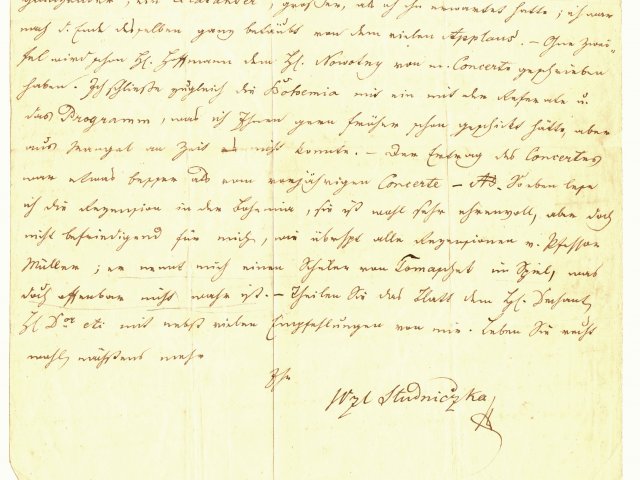 größer, als ich ihn erwartet hatte; ich war
nach d. Ende desselben ganz betäubt von dem vielen Applaus. – Ohne Zwei-
fel wird schon H. Hoffmann dem H. Nowotny von m. Concerte geschrieben
haben. Ich schließe zugleich die Bohemia mit ein mit der Referate u.
das Programm, was ich Ihnen gern früher schon geschickt hätte, aber
aus Mangel an Zeit nicht konnte. – Der Ertrag des Concertes
war etwas besser als vom vorjährigen Concerte – Soeben lese
ich die Rezension in der Bohemia, sie ist wohl sehr ehrenvoll, aber doch
nicht befriedigend für mich, wie überhpt alle Rezensionen v. Pfessor
Müller; er nennt mich einen Schüler von Tomaschek im Spiel, was
doch offenbar nicht wahr ist. – Theilen Sie das Blatt dem H. Dechant,
H. Dor etc mit nebst vielen Empfehlungen von mir. Leben Sie recht
wohl, nächstens mehr
Ihr
Wzl Studniczka